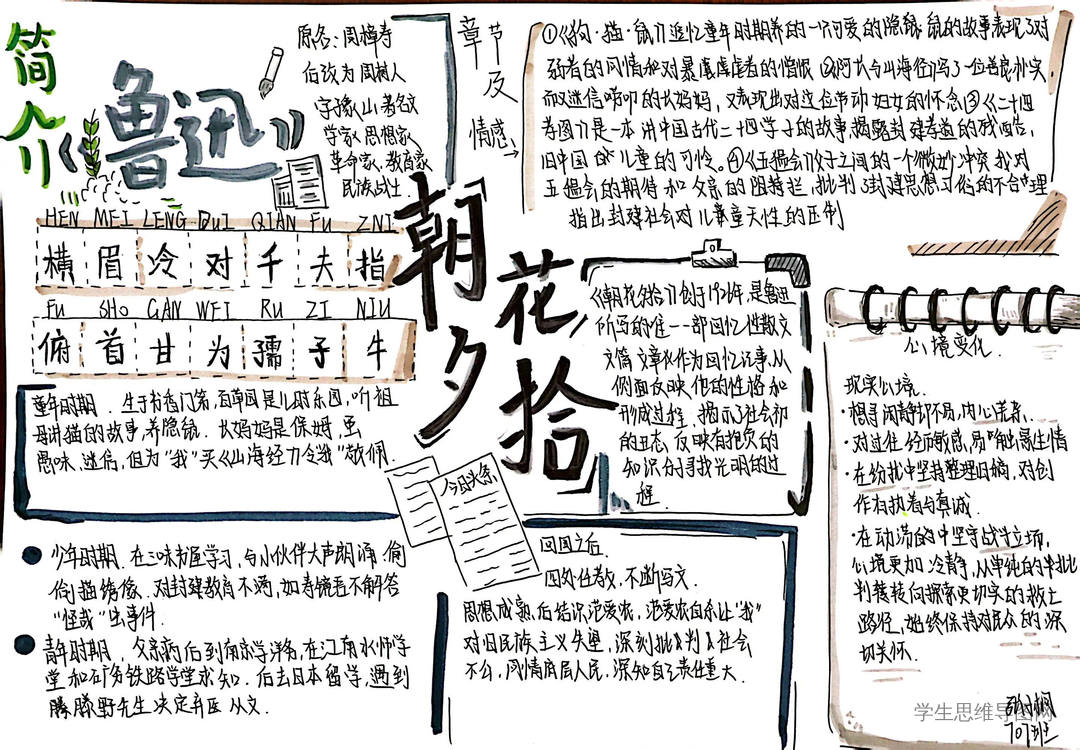 简介《鲁迅》
原名:周樟寿
后改为周树人
字豫山,著名文
学家、思想家、
革命家、教育家、
民族战士
HEN MEI LENG DUI QIAN FU ZNI
横眉冷对千夫指
FU SHO GAN WEI RU ZI NIU
俯首甘为孺子牛
童年时期. 生于书香门第,百草园是儿时乐园,听祖
母讲猫的故事,养隐鼠. 长妈妈是保姆,虽
愚昧、迷信,但为“我”买《山海经》令“我”敬佩.
少年时期. 在三味书屋学习,与小伙伴大声朗诵,偷
偷描绣像. 对封建教育不满,如寿镜吾不解答
“怪哉”虫事件.
青年时期. 父亲病后到南京学洋务,在江南水师学
堂和矿务铁路学堂求知. 后去日本留学,遇到
藤野先生,决定弃医从文.
朝花夕拾
章节及
情感→
①《狗·猫·鼠》追忆童年时期养的一只可爱的隐鼠,鼠的故事表现了对
弱者的同情和对暴虐者的憎恨②《阿长与山海经》写了一位善良朴实
而又迷信唠叨的长妈妈,又表现出对这位劳动妇女的怀念③《二十四
孝图》是一本讲中国古代二十四孝子的故事,揭露封建孝道的残酷,
旧中国儿童的可怜。④《五猖会》父子之间的一个微妙冲突,我对
五猖会的期待和父亲的阻持拦,批判了封建思想习俗的不合理
指出封建社会对儿童天性的压制
《朝花夕拾》创于1926年,是鲁迅
所写的唯一一部回忆性散文
文篇文章作为回忆记事,从
侧面反映他的性格和
形成过程,揭示了社会初
的丑态,反映有抱负的
知识分子寻找光明的过
程.
今日头条
回国之后.
国外任教,不断写文.
思想成熟,后结识范爱农,范爱农自杀让“我”
对旧民族主义失望,深刻批判社会
不公,同情底层人民,深知自己责任重大.
心境变化.
现实心境.
·想寻闲静却不易,内心荒芜.
·对过往经历敏感,易触景生情
·在纷扰中坚持整理旧稿,对创
作有执着与真诚.
·在动荡的中坚守战斗立场,
心境更加冷静,从单纯的批
判转向探索更切实的救亡
路径,始终保持对民众的深
切关怀.
707班
学生思维导图网